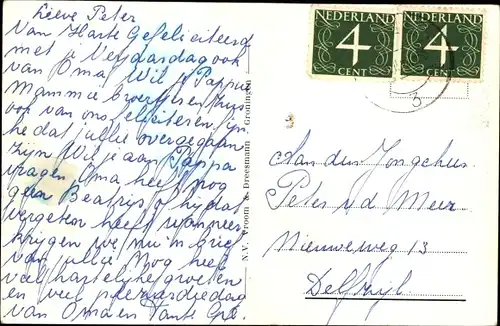 Lieve Peter
Van Harte Gefeliciteerd
met je Verjaardag ook
van Oma Wil je Pappie
Mammie broertje en
ook van ons feliciteren
he dat jullie overgegaan
zijn Wil je aan Pappa
vragen Oma heeft nog
geen Beatrijs of hij dat
vergeten heeft wanneer
krijgen we nu 'n brief
van jullie Nog heel
veel hartelijke groeten
en veel plezier
van Oma en Tante
N.V. Vroom & Dreesmann Groningen
NEDERLAND
4
CENT
NEDERLAND
4
CENT
Aan den Jongeheer
Peter v.d Meer
Nieuweweg 13
Delfzijl